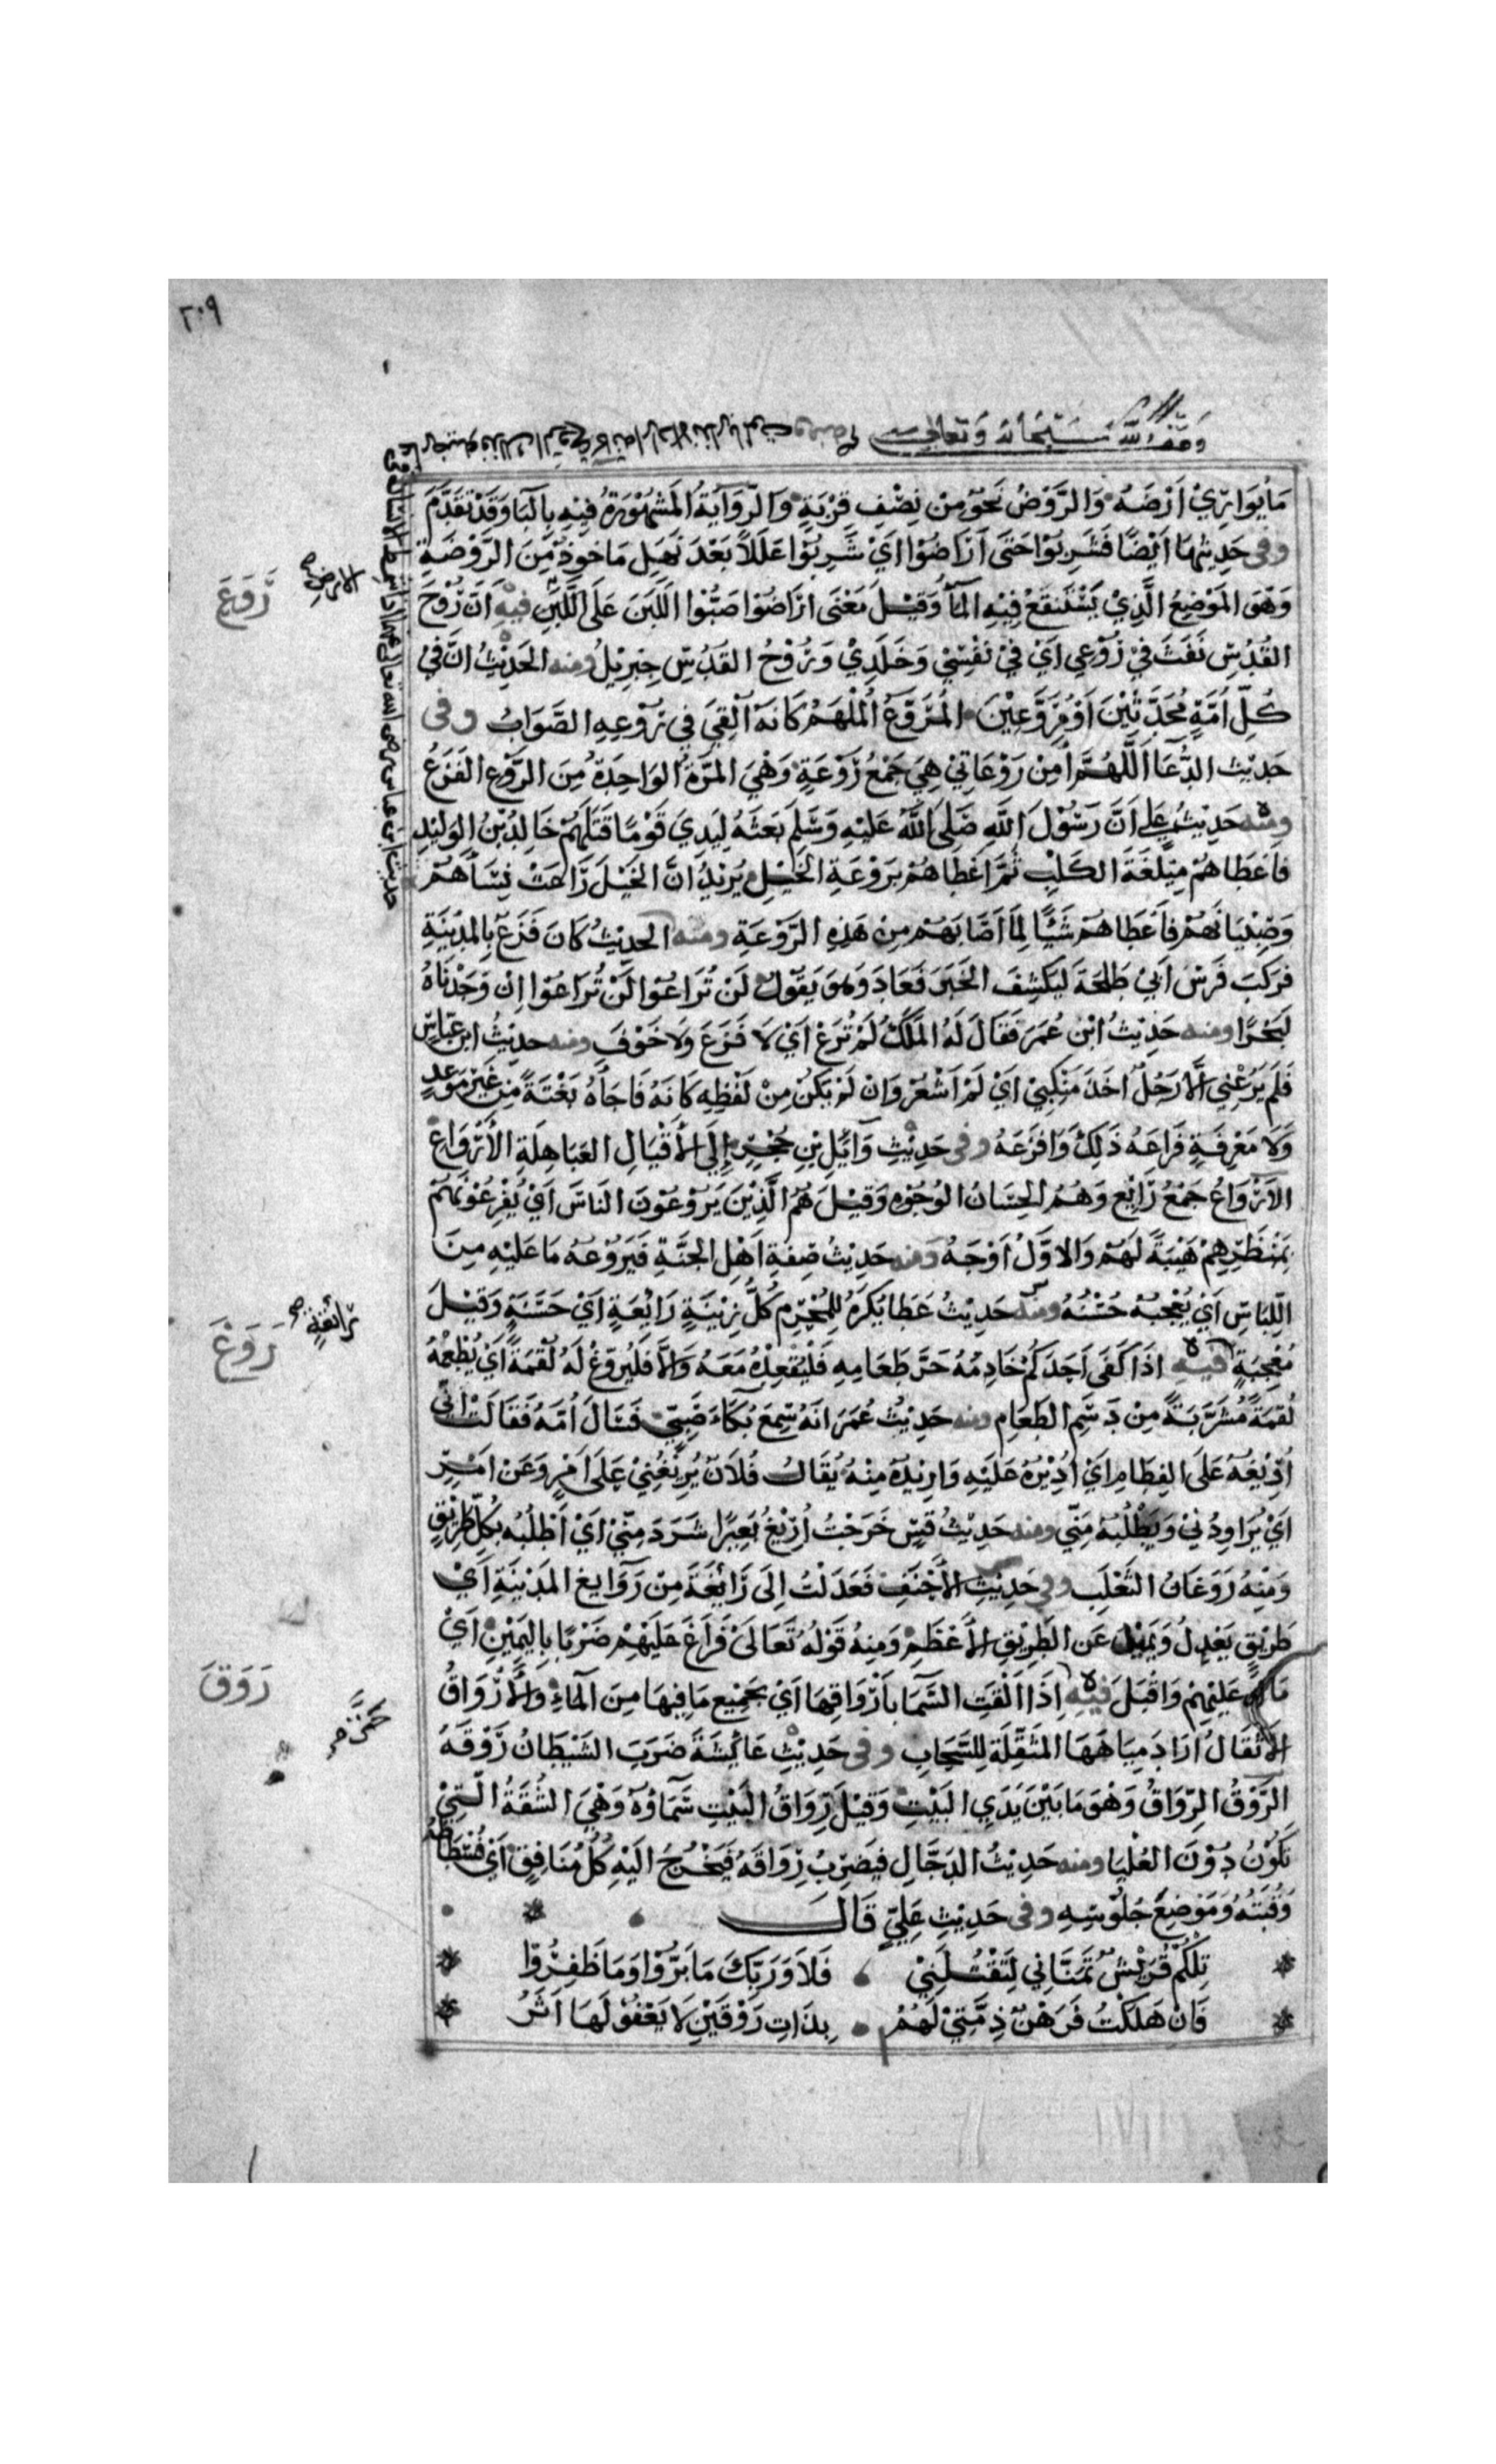 ٢٠٩
وقف لله سبحانه وتعالى
مَا يُوَارِيْ اَرْضَهُ وَالرَّوْضُ نَحْوٌ مِنْ نِصْفِ قِرْبَةٍ وَالرِّوَايَةُ المَشْهُوْرَةُ فِيْهِ بِالبَا وَقَدْ تَقَدَّمَ
وفى حَدِيْثِهَا اَيْضًا فَشَرِبُوْا حَتَى اَرَاضُوْا اَيْ شَرِبُوْا عَلَلاً بَعْدَ نَهَلٍ مَاخُوذٌ مِنَ الرَّوْضَةِ
وَهْوَ المَوْضِعُ الَّذِيْ يَسْتَنقِعُ فِيْهِ المَآ وَقِيْلَ مَعْنَى ارَاضُوْا صَبُّوْا اللَبَنَ عَلَى اللَّبَنِ فيه اَنَّ رُوْحَ
القُدُسِ نَفَثَ فِيْ رُوْعِي اَيْ فِيْ نَفْسِيْ وَخَلَدِيْ وَرُوْحُ القُدُسِ جِبْرِيْلُ ومنه الحَدِيْثُ انَّ فِيْ
كُلِّ اُمَّةٍ مُحَدَّثِيْنَ اَوْ مُرَوَّعِيْنَ المُرَوَّعُ المُلْهَمُ كَانَهُ اُلْقِيَ فِي رُوْعِهِ الصَّوَابُ وفى
حَدِيْث الدُّعَآ اَللَّهُمَّ اٰمِنْ رَوْعَاتِيْ هِيَ جَمْعُ رَوْعَةٍ وَهْيَ المَرَّةُ الوَاحِدَةُ مِنَ الرَّوْعِ الفَزَعُ
ومنه حَدِيْثُ عَلِي اَنَّ رَسُوْلَ اللَّهِ صَلَى اللَّهُ عَلَيْهِ وَسَلمَ بَعَثَهُ لِيَدِيَ قَوْمًا قَتَلَهُمْ خَالِدُ بْنُ الوَلِيْدِ
فاَعْطَاهُمْ مِيْلَغَةَ الكَلْبِ ثُمَّ اَعْطَاهُمْ بِرَوْعَةِ الخَيْلِ يُرِيْدُ اَنَّ الخَيْلَ رَاعَتْ نِسَآهُمْ
وَصِبْيَانَهُمْ فاَعْطَاهُمْ شَيْئًا لِمَا اَصَابَهُمْ مِنْ هَذِهِ الرَّوْعَةِ ومنه الحَدِيْثُ كَانَ فَزَعٌ بِالمَدِيْنَةِ
فَرَكِبَ فَرَسَ اَبِيْ طَلْحَةَ لِيَكْشِفَ الخَبَرَ فَعَادَ وَهوَ يَقُوْلُ لَنْ تُرَاعُوْا لَنْ تُرَاعُوْا اِنْ وَجَدْنَاهُ
لَبَحْرًا ومنه حَدِيْثُ ابْنِ عُمَرَ فَقَالَ لَهُ المَلَكُ لَمْ تُرَعْ اَيْ لَا فَزَعَ وَلَا خَوْفَ ومنه حديْثُ ابن عَبّاسٍ
فَلَم يَرُعْنِي اِلَّا رَجُلٌ اَخَذَ مَنْكِبِيْ اَيْ لَمْ اَشْعُرْ وَانْ لَمْ يَكُنْ مِنْ لَفْظِهِ كَانَهُ فَاجَأهُ بَغْتَةً مِنْ غَيْرِ مَوْعِدٍ
وَلَا مَعْرِفَةٍ فَرَاعَهُ ذَلِكَ وَافْزَعَهُ وفى حَدِيْثِ وَآئِلِ بْنِ حُجْرٍ اِلَى الأقْيَالِ العَبَاهِلَةِ الأَرْوَاعِ
الاَرْوَاعُ جَمْعُ رَائِعٍ وَهُمُ الحِسَانُ الوُجُوْهِ وَقِيْلَ هُمُ الَّذِيْنَ يَرُوْعُوْنَ النَاسَ اَيْ يُفْزِعُوْنَهُمْ
بِمَنْظَرِهِمْ هَيْبَةً لَهُمْ وَالاوَّلُ اَوْجَهُ ومنه حَدِيْثُ صِفَةِ اَهْلِ الجَنَّةِ فَيَرُوْعُهُ مَا عَلَيْهِ مِنَ
اللِّبَاسِ اَيْ يُعْجِبُهُ حُسْنُهُ ومنه حَدِيْثُ عَطَا يُكْرَهُ لِلْمُحْرِمِ كُلُّ زِيْنَةٍ رَائِعَةٍ اَيْ حَسَنَةٍ وَقِيْلَ
مُعْجِبَةٍ فيه اذَا كَفَى اَحَدَكُمْ خَادِمُهُ حَرَّ طَعَامِهِ فَلْيُقْعِدْهُ مَعَهُ وَالَّا فَلْيُرَوِّغْ لَهُ لُقْمَةً اَيْ يُطْعِمُهُ
لُقْمَةً مُشَرَّبَةً مِنْ دَسَمِ الطَعَامِ ومنه حَدِيْثُ عُمَرَ انَهُ سَمِعَ بُكَآءَ صَبِيٍّ فَسَالَ اُمَّهُ فَقَالَتْ انِّي
اُرِيْغُهُ عَلَى الفِطَامِ اَيْ اُدِيْرُهُ عَلَيْهِ وَارِيْدُهُ مِنْهُ يُقَالُ فُلَانٌ يُرِيْغُنِيْ عَلَى اَمْرٍ وَعَنْ اَمْرٍ
اَيْ يُرَاوِدُنِيْ وَيَطْلُبُهُ مِنِّي ومنه حَدِيْثُ قَيْسٍ خَرَجْتُ اُرِيْغُ بَعِيْرًا شَرَدَ مِنّيْ اَيْ اَطْلُبُه بكُلِّ طَرِيْقٍ
وَمِنْهُ رَوَغَانُ الثَّعْلَبِ وفي حَدِيْثِ الأَحْنَفِ فَعَدَلْتُ اِلَى رَائِغَةٍ مِنْ رَوَايِغ المَدِيْنَةِ اَيْ
طَرِيْقٍ يَعْدِلُ وَيَمِيْلُ عَنِ الطَرِيْقِ الأَعْظَمِ وَمِنْهُ قَوْلُهُ تَعَالَى فَرَاغَ عَلَيْهِمْ ضَرْبًا بِاليَمِيْنِ اَيْ
مَالَ عَلَيْهِمْ وَاقْبَلَ فيه اِذَا اَلْقَتِ السَّمَا بِاَرْوَاقِهَا اَيْ بِجَمِيْعِ مَا فِيهَا مِنَ المَاءِ وَالأَرْوَاقُ
الاَثْقَالُ ارَادَ مِيَاهَهَا المُثَقِّلَةَ لِلسَّحَابِ وفى حَدِيْثِ عَائِشَةَ ضَرَبَ الشَيْطَانُ رَوْقَهُ
الرَّوْقُ الرِّوَاقُ وَهْوَ مَا بَيْنَ يَدَيِ البَيْتِ وَقِيْلَ رِوَاقُ البَيْتِ سَمَاوُهُ وَهْيَ الشُقَةُ الَّتِيْ
تَكُوْنُ دُوْنَ العُلْيَا ومنه حَدِيْثُ الدَجَّالِ فيَضْرِبُ رِوَاقَهُ فَيَخْرُجُ الَيْهِ كُلُّ مُنَافِقٍ اَيْ فُسْطَاطَهُ
وَقُبَتَهُ وَمَوْضِعَ جُلُوْسِهِ وفى حَدِيْثِ عَلِيّ قَالَ
تِلْكُمْ قُرَيْشٌ تَمَنَّانِي لِتَقْتُلَنِيْ فَلَا وَرَبِّكَ مَا بَرُّوْا وَمَا ظَفِرُوْا
فَانْ هَلَكْتُ فَرَهْنٌ ذِمَّتِيْ لَهُمُ بِذَاتِ رَوْقَيْنِ لَا يَعْفُوْ لَهَا اَثَرُ
رَوَعَ
الارض صح
رَوَغَ
رَوَقَ